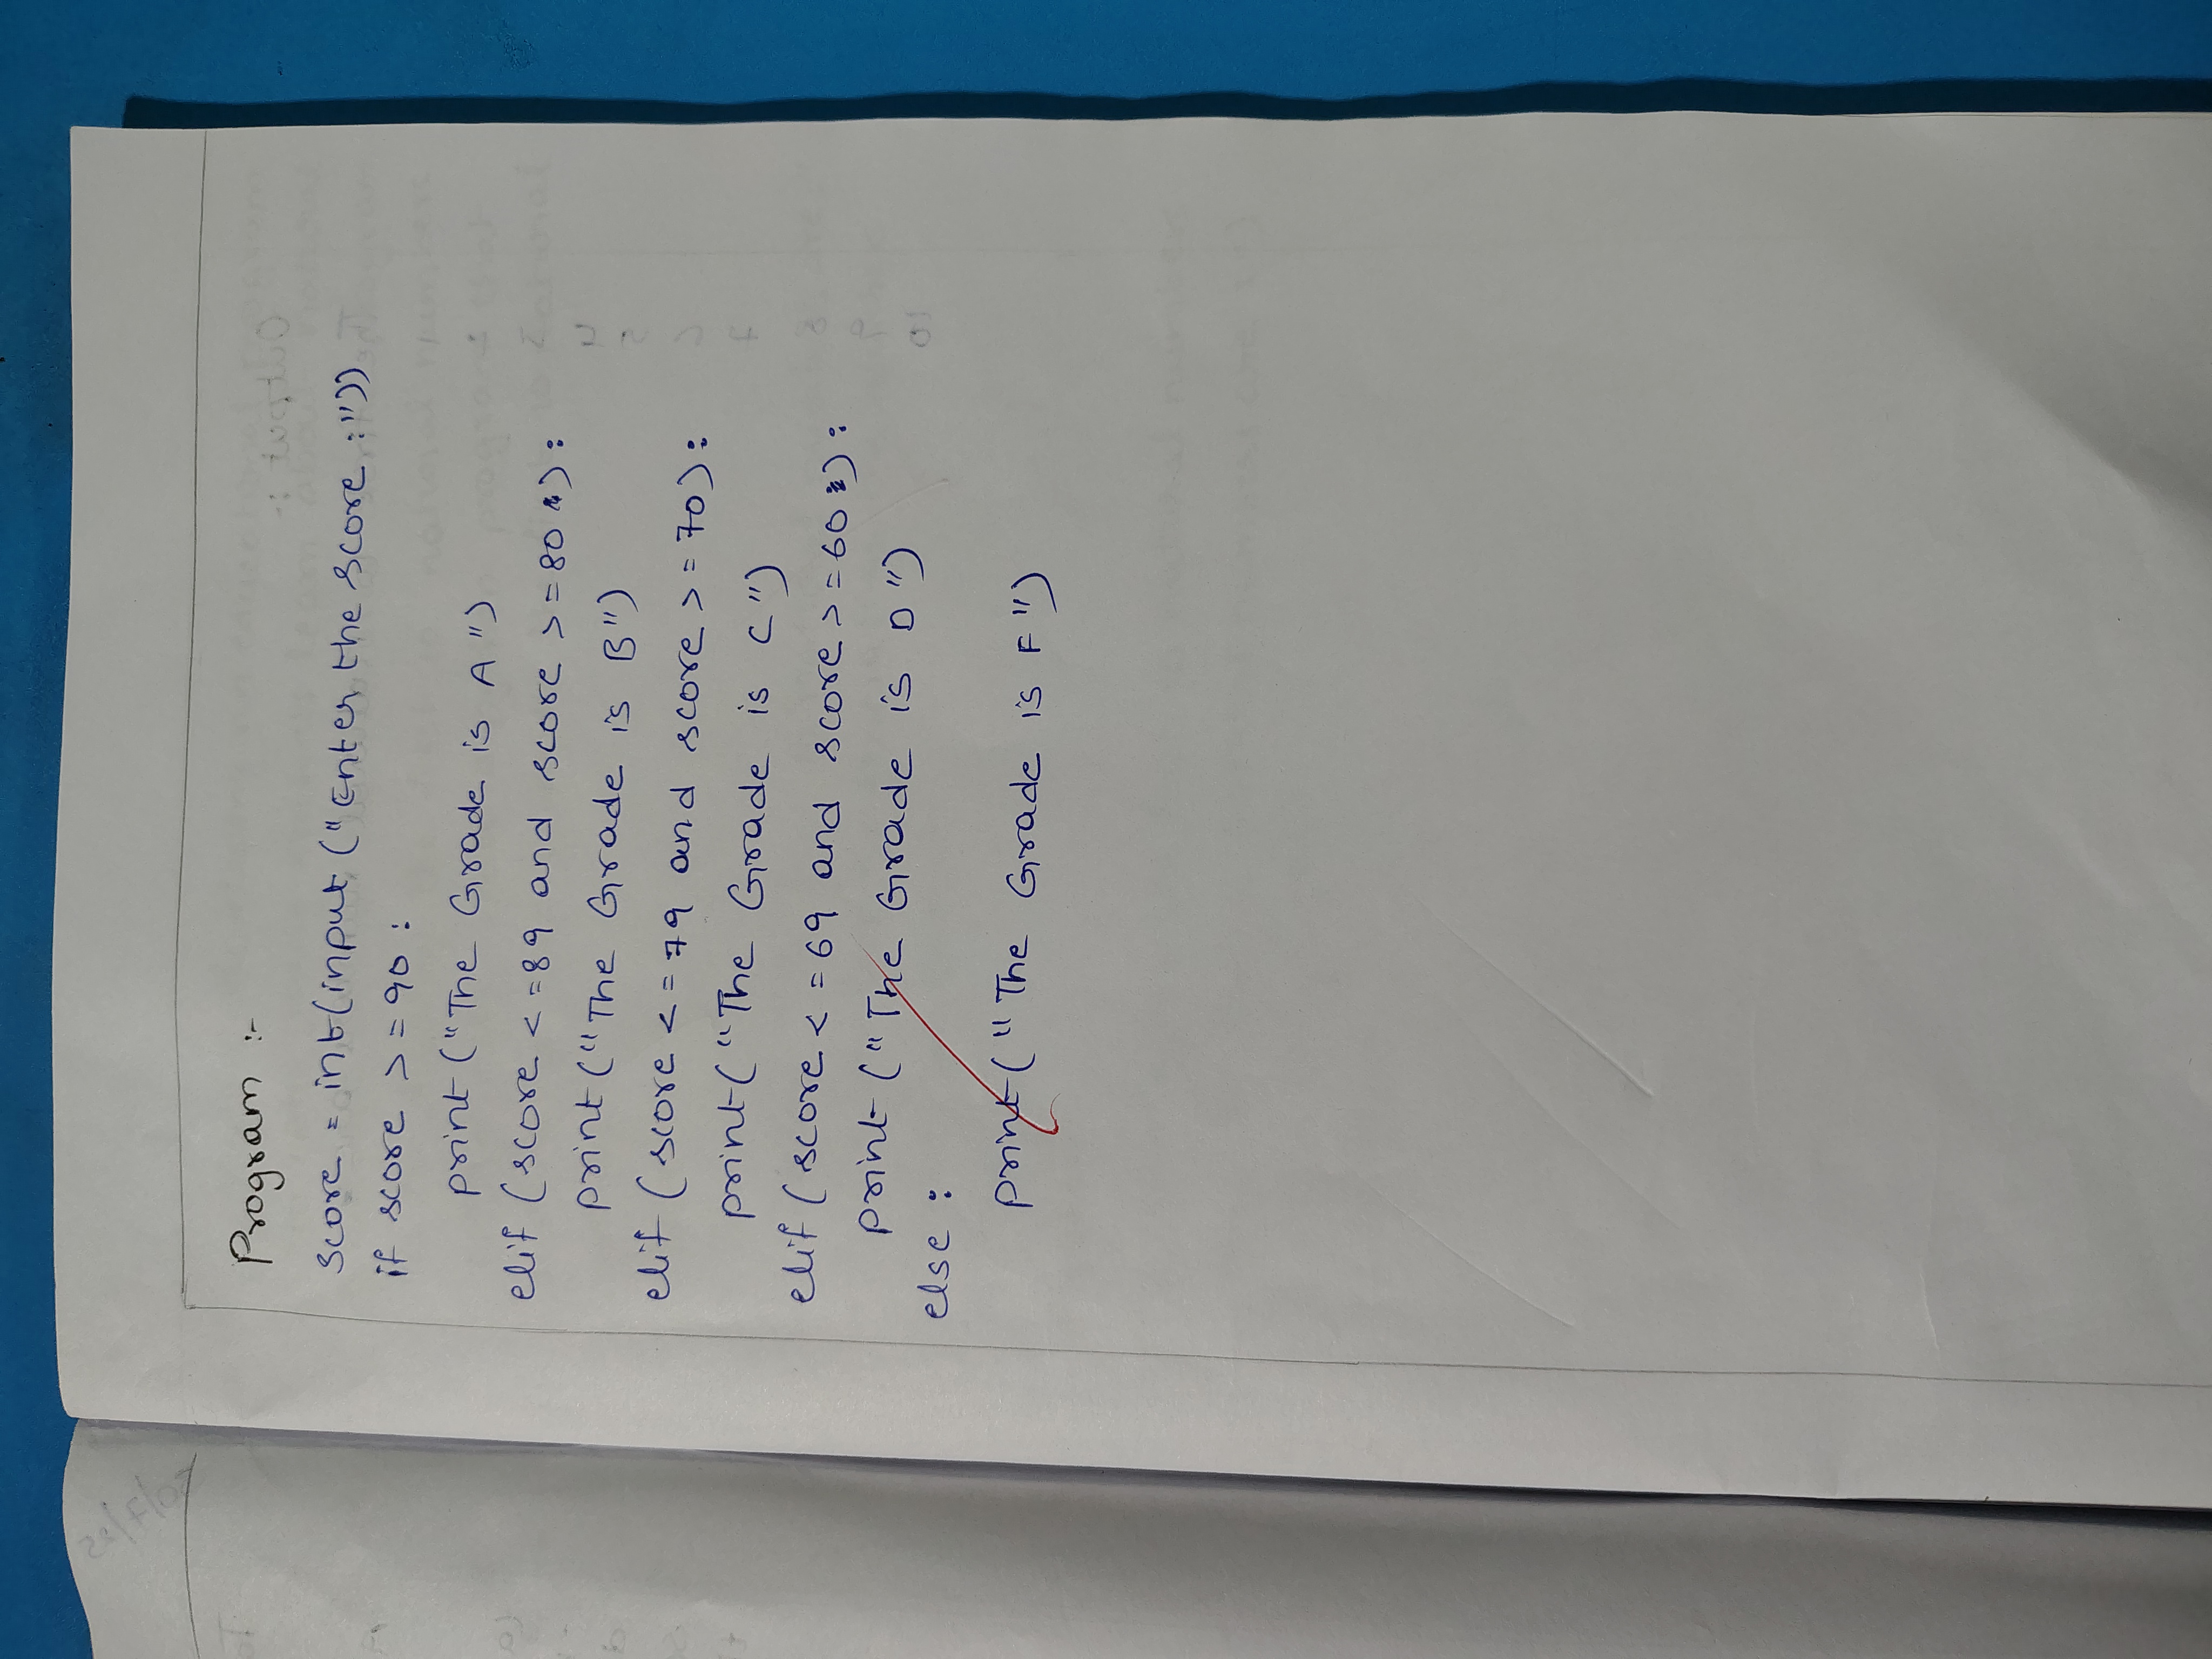 Program :-
score = int(input ("Enter the score :"))
if score >= 90 :
print ("The Grade is A")
elif (score <= 89 and score >= 80) :
print ("The Grade is B")
elif (score <= 79 and score >= 70) :
print ("The Grade is C")
elif (score <= 69 and score >= 60) :
print ("The Grade is D")
else :
print ("The Grade is F")